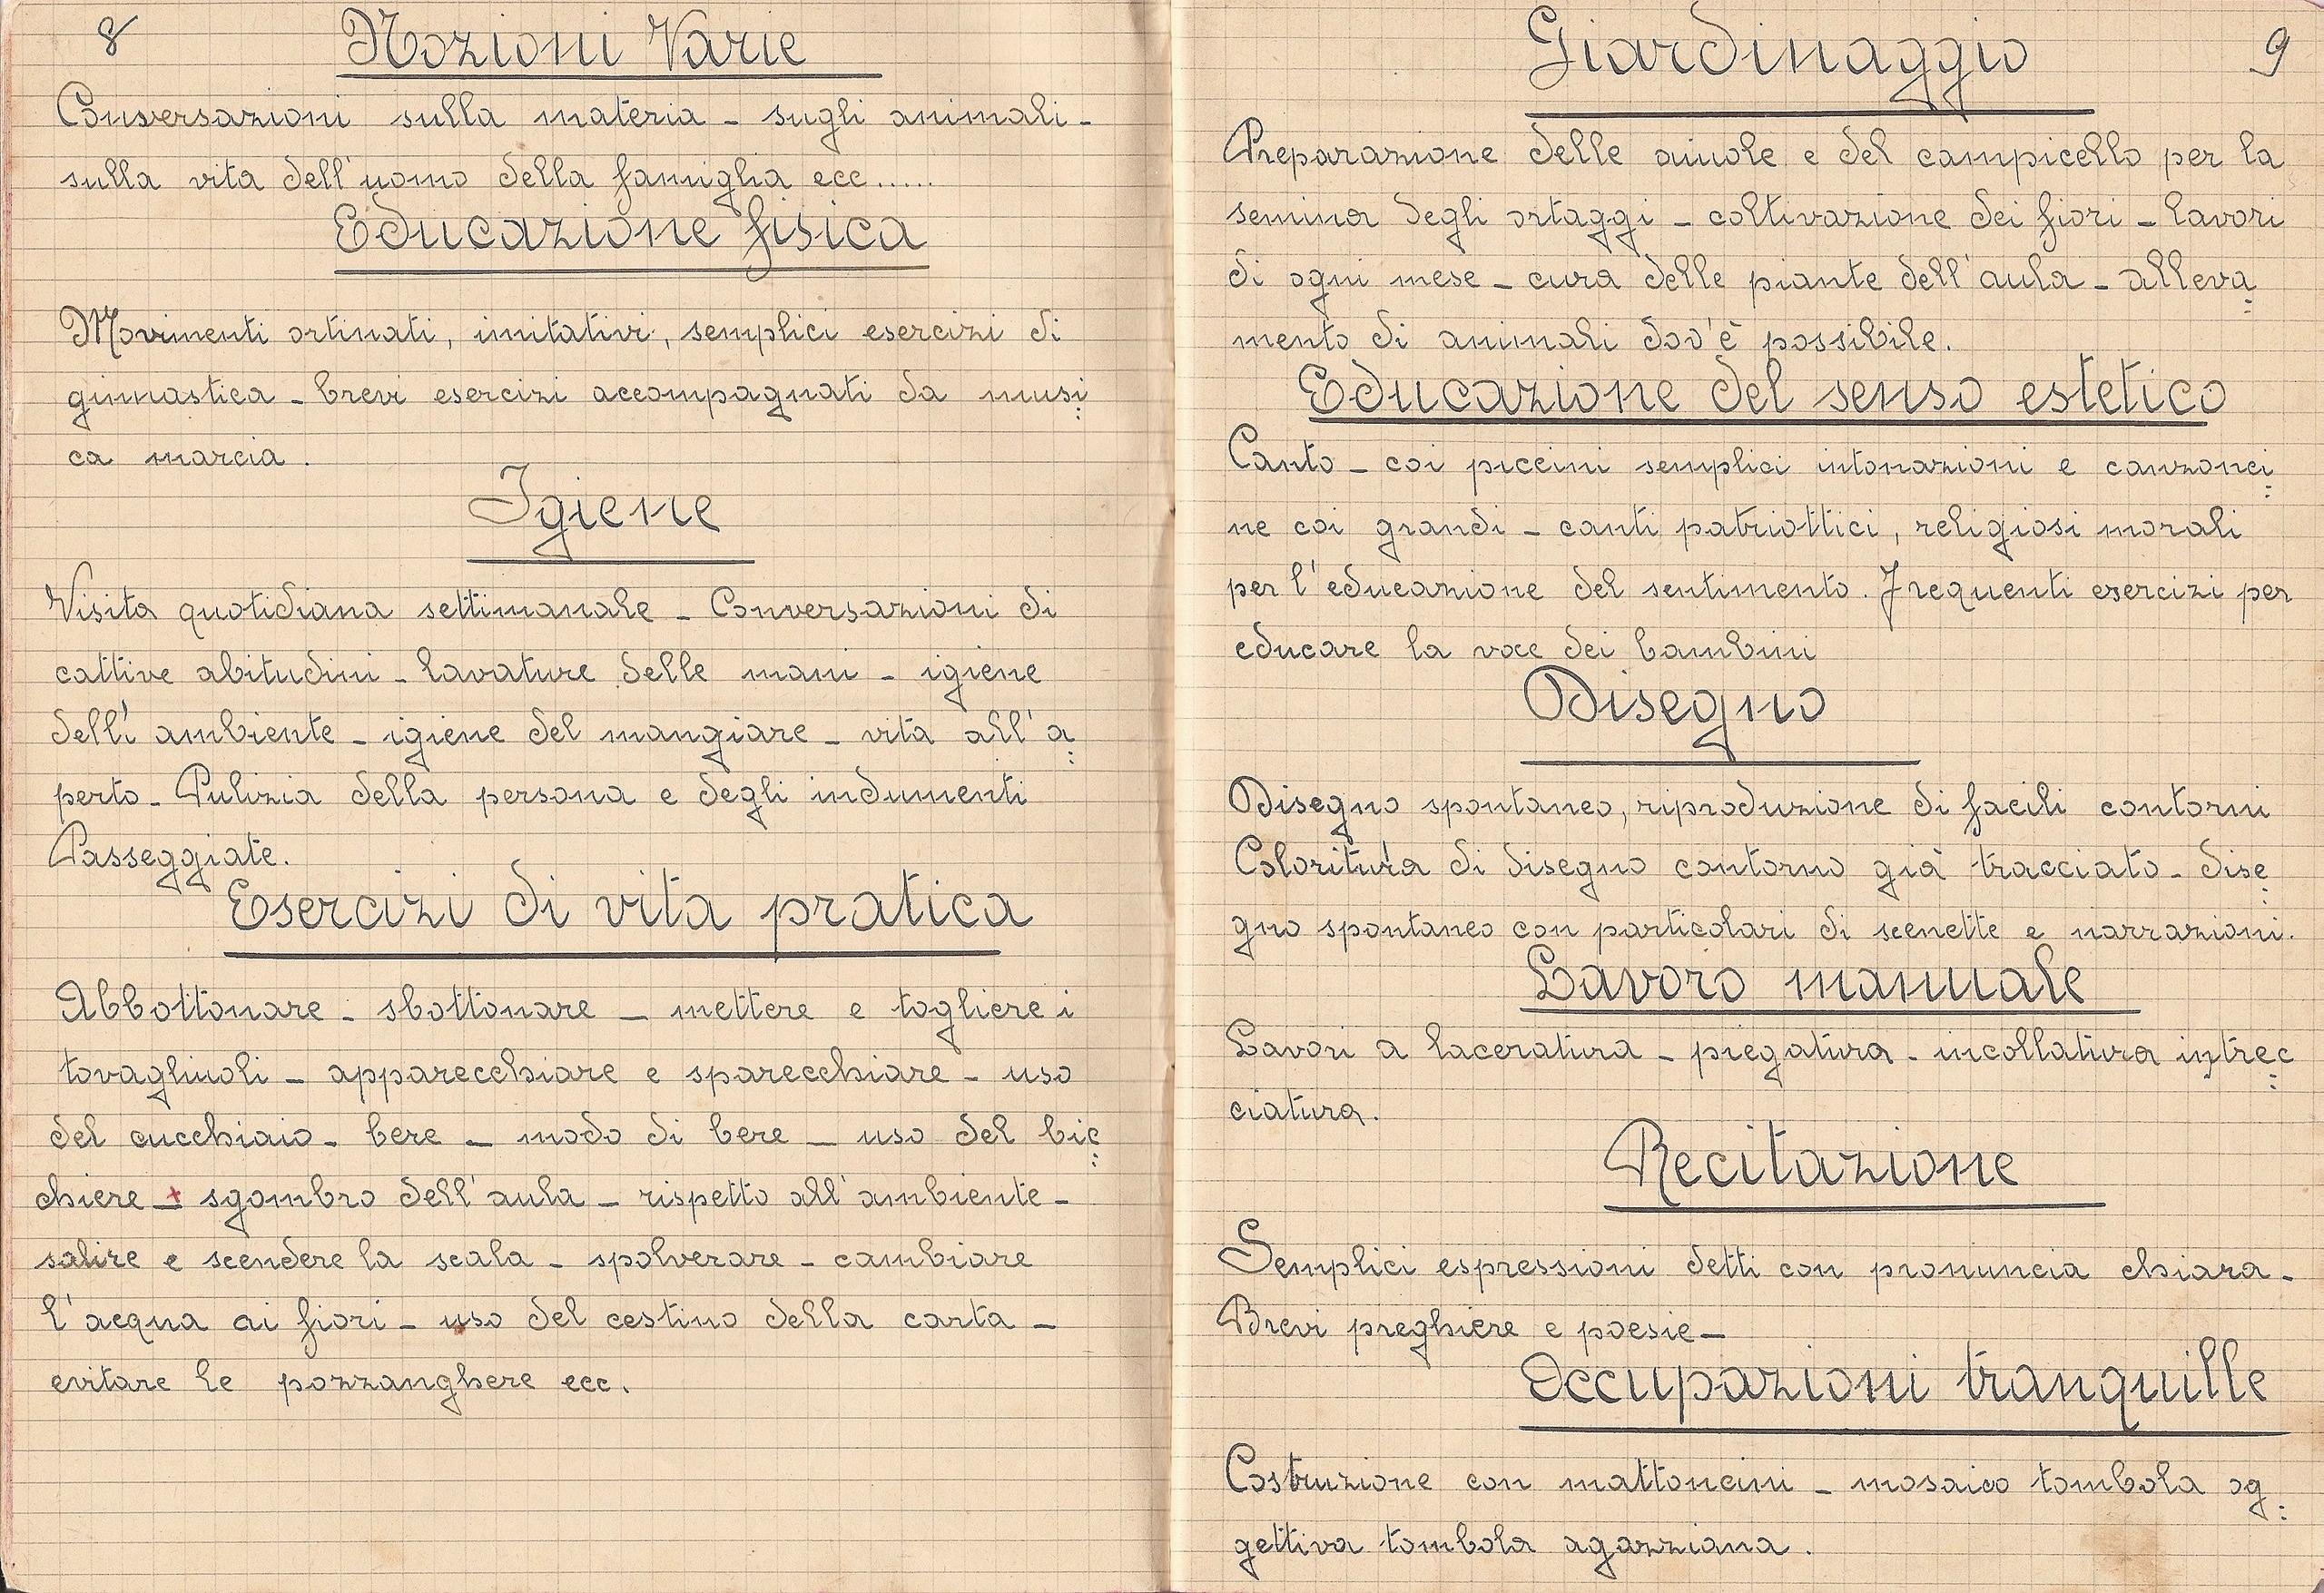 8
Nozioni Varie
Conversazioni sulla materia - sugli animali -
sulla vita dell'uomo della famiglia ecc......
Educazione fisica
Movimenti ortinati, imitativi, semplici esercizi di
ginnastica - brevi esercizi accompagnati da musi:
ca marcia.
Igiene
Visita quotidiana settimanale - Conversazioni di
cattive abitudini - lavature delle mani - igiene
dell'ambiente - igiene del mangiare - vita all'a:
perto - Pulizia della persona e degli indumenti
Passeggiate.
Esercizi di vita pratica
Abbottonare - sbottonare - mettere e togliere i
tovaglinoli - apparecchiare e sparecchiare - uso
del cucchiaio - bere - modo di bere - uso del bic:
chiere - sgombro dell'aula - rispetto all'ambiente -
salire e scendere la scala - spolverare - cambiare
l'acqua ai fiori - uso del cestino della carta -
evitare le pozzanghere ecc.
9
Giardinaggio
Preparazione delle aiuole e del campicello per la
semina degli ortaggi - coltivazione dei fiori - lavori
di ogni mese - cura delle piante dell'aula - alleva:
mento di animali dov'è possibile.
Educazione del senso estetico
Canto - coi piccini semplici intonazioni e canzonci:
ne coi grandi - canti patriottici, religiosi morali
per l'educazione del sentimento. Frequenti esercizi per
educare la voce dei bambini
Disegno
Disegno spontaneo, riproduzione di facili contorni
Coloritura di disegno contorno già tracciato - dise:
gno spontaneo con particolari di scenette e narrazioni.
Lavoro manuale
Lavori a laceratura - piegatura - incollatura intrec:
ciatura.
Recitazione
Semplici espressioni detti con pronuncia chiara -
Brevi preghiere e poesie -
Occupazioni tranquille
Costruzione con mattoncini - mosaico tombola og:
gettiva tombola agazziana.